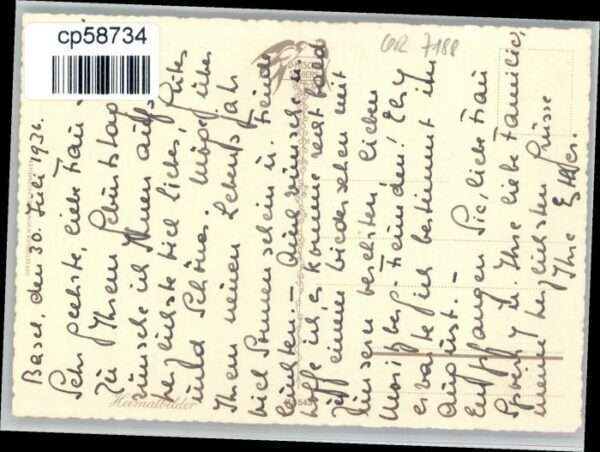 cp58734
GR 7188
Basel, den 30. Juli 1936.
Sehr geehrte, liebe Frau
Zu Ihrem Geburtstag
wünsche ich Ihnen aufs
herzlichste viel Liebes, Gutes
und Schönes. Möge über
Ihrem neuen Lebensjahr
viel Sonnenschein u. Freude
leuchten. — Auch wünsche u.
hoffe ich, es komme recht bald
zu einem Wiedersehen mit
unseren verehrten, lieben
freunden!
erwarte ich bestimmt im
August. —
Empfangen Sie, liebe Frau
u. Ihre liebe Familie,
meine herzlichsten Grüsse
Ihre
Heimatbilder